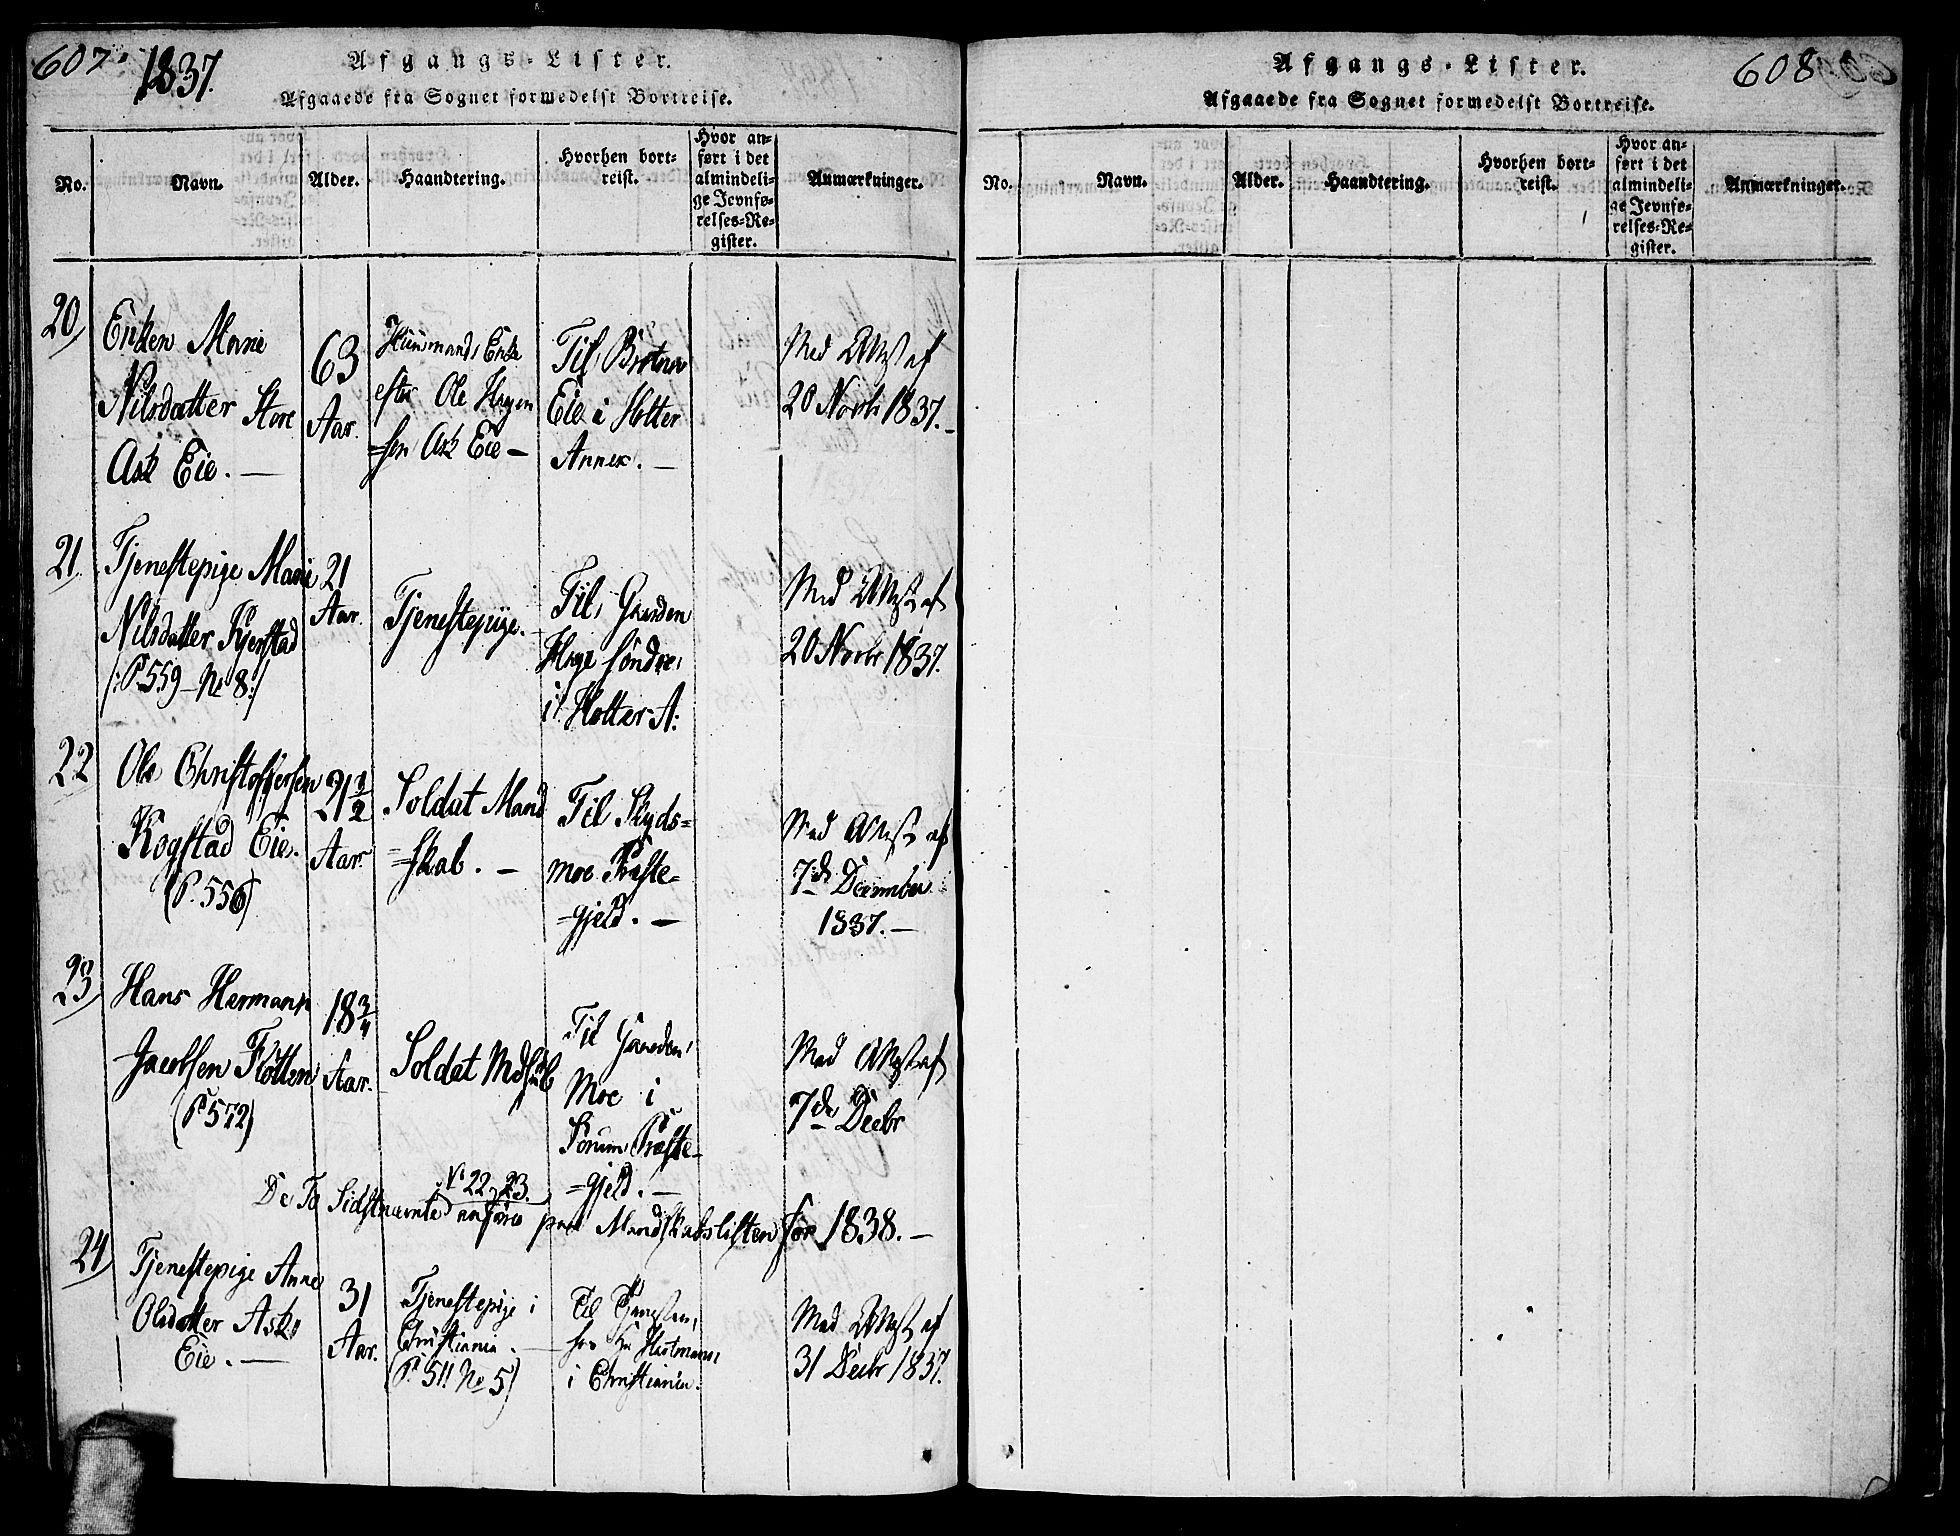 607. 1837.
Afgangs-Lister.
Afgaaede fra Sognet formedelst Bortreise.
No.
Navn.
Alder.
Haandtering.
Hvorhen bort-
reist.
Hvor an-
ført i det
almindeli-
ge Jevnfø-
relses-Re-
gister.
Anmærkninger.
20
Enken Marie
Nilsdatter Store
Ask Eie. —
63
Aar.
Huusmands Enke
efter Ole Hagen
=sen Ask Eie —
Til
Eie i Holter
Annex. —
Med Attest af
20 Novbr 1837. —
21
Tjenestepige Marie
Nilsdatter Kjerstad
/: P. 559 — No 8 :/
21
Aar.
Tjenestepiige. —
Til Gaarden
Hage søndre
i Holter A:
Med Attest af
20 Novbr 1837.
22
Ole Christoffersen
Kogstad Eie.
(P. 556)
21 1/2
Aar.
Soldat Mand
=skab. —
Til Skyds=
moe Præste=
=gjeld. —
Med Attest af
7de December
1837. —
23
Hans Hermann
Jacobsen Flotten
(P. 572)
18 3/4
Aar.
Soldat Mdskb
Til Gaarden
Moe i
Sørum Præste=
=gjeld. —
Med Attest af
7de Decbr
No 22 23.
De To Sidstnævnte anføres paa Mandskabslisten for 1838. —
24
Tjenestepige Anne
Olsdatter Ask
Eie. —
31
Aar.
Tjenestepige i
Christiania. —
(P. 511 No 5)
Til Tjenesten
hos Hartmann
i Christiania.
Med Attest af
31 Decbr 1837.
Afgangs-Lister.
608
Afgaaede fra Sognet formedelst Bortreise.
No.
Navn.
Alder.
Haandtering.
Hvorhen bort-
reist.
Hvor an-
ført i det
almindeli-
ge Jevnfø-
relses-Re-
gister.
Anmærkninger.